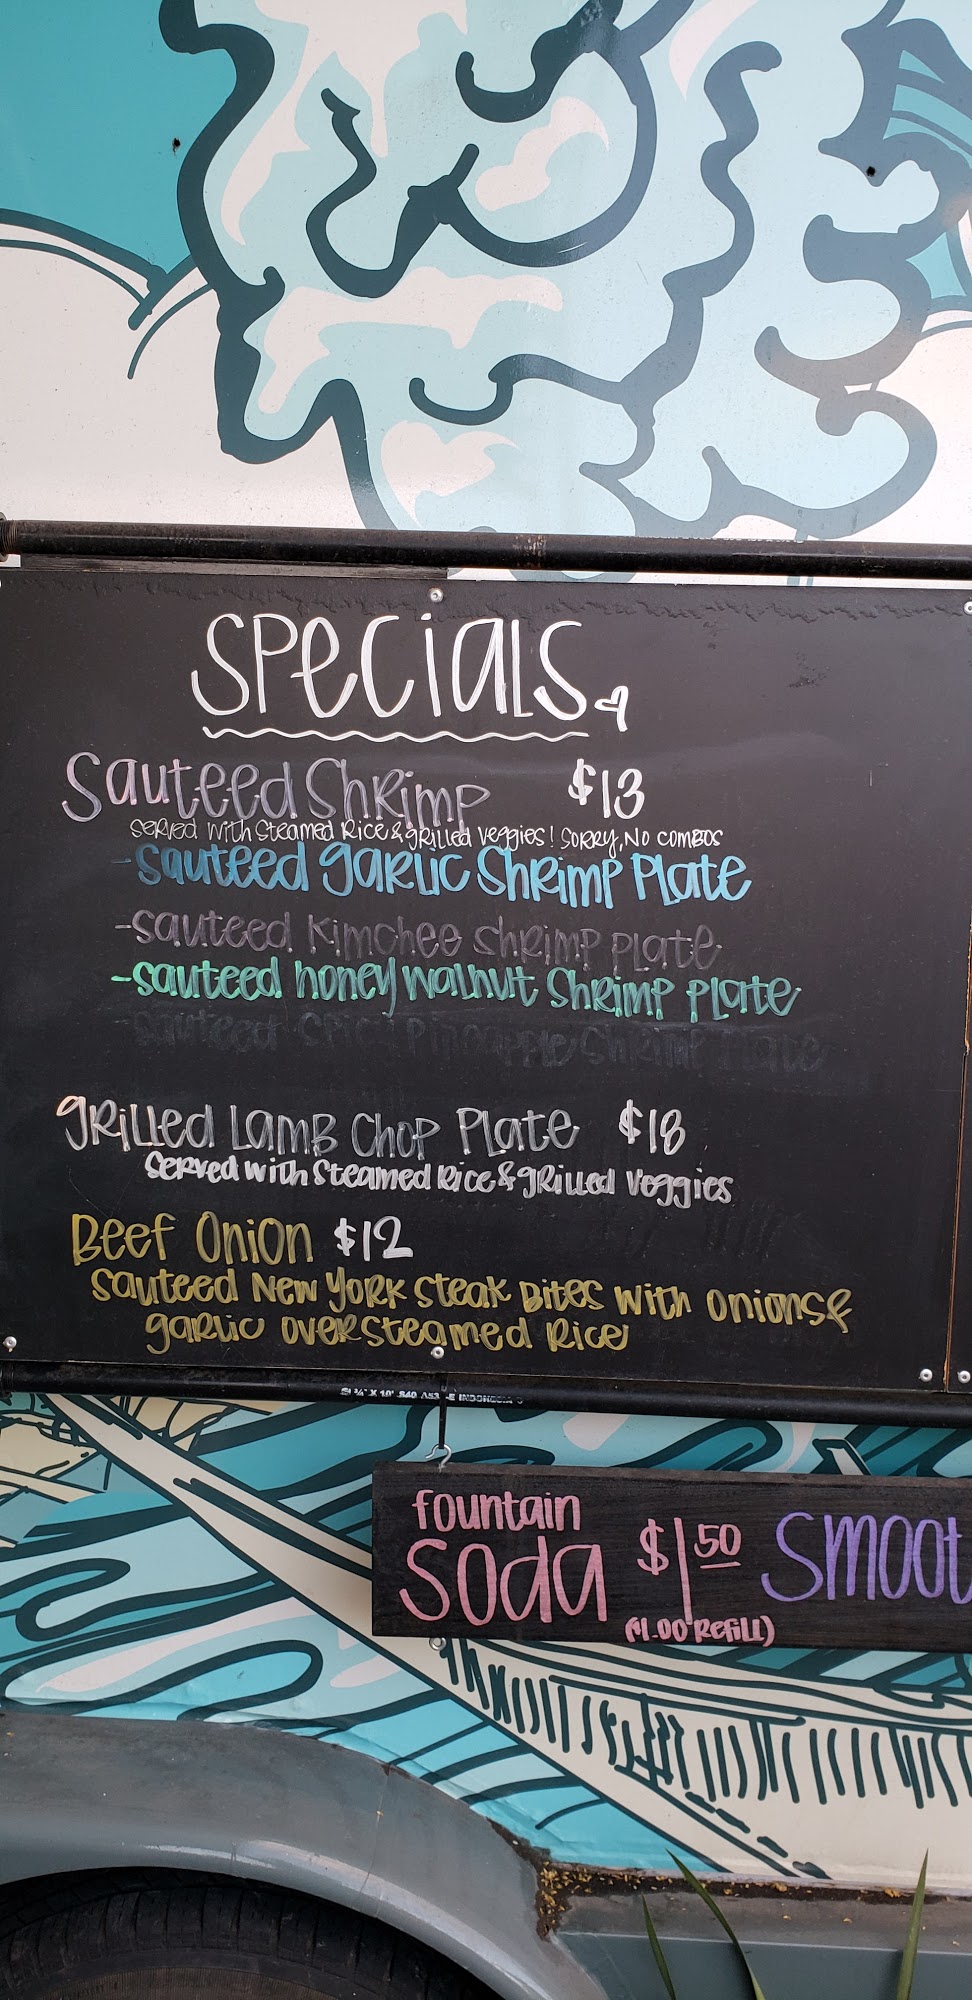 Specials
Sauteed Shrimp $13
served with Steamed Rice & grilled veggies! Sorry, No combos
-sauteed garlic Shrimp Plate
-sauteed Kimchee shrimp plate
-sauteed honey walnut Shrimp plate
sauteed Spicy Pineapple Shrimp Plate
grilled Lamb Chop Plate $18
Served with Steamed Rice & grilled Veggies
Beef Onion $12
sauteed New York steak Bites with onions &
garlic over steamed rice
fountain
soda $1.50 smoot
($1.00 Refill)